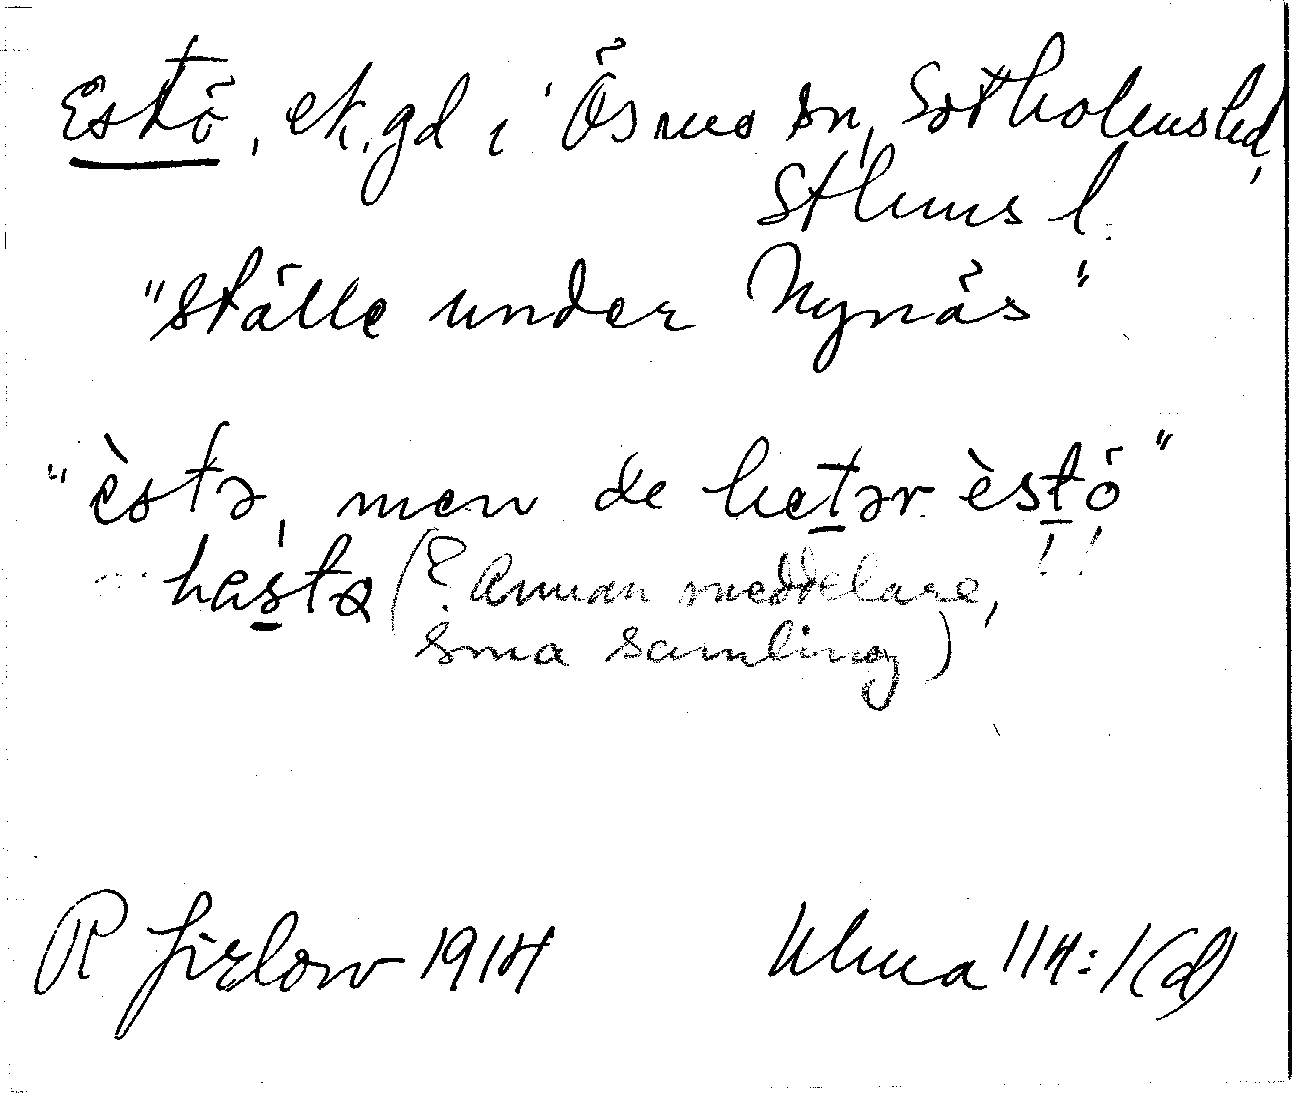 Estö, ek.gd i Ösmo sn, Sotholms hd,
Sthms l.
"ställe under Nynäs"
"èstə, men de hetər èstö"
hestə (? Annan meddelare, !!
sma samling)
R Jirlow 1914 Ulma 114:1(d)